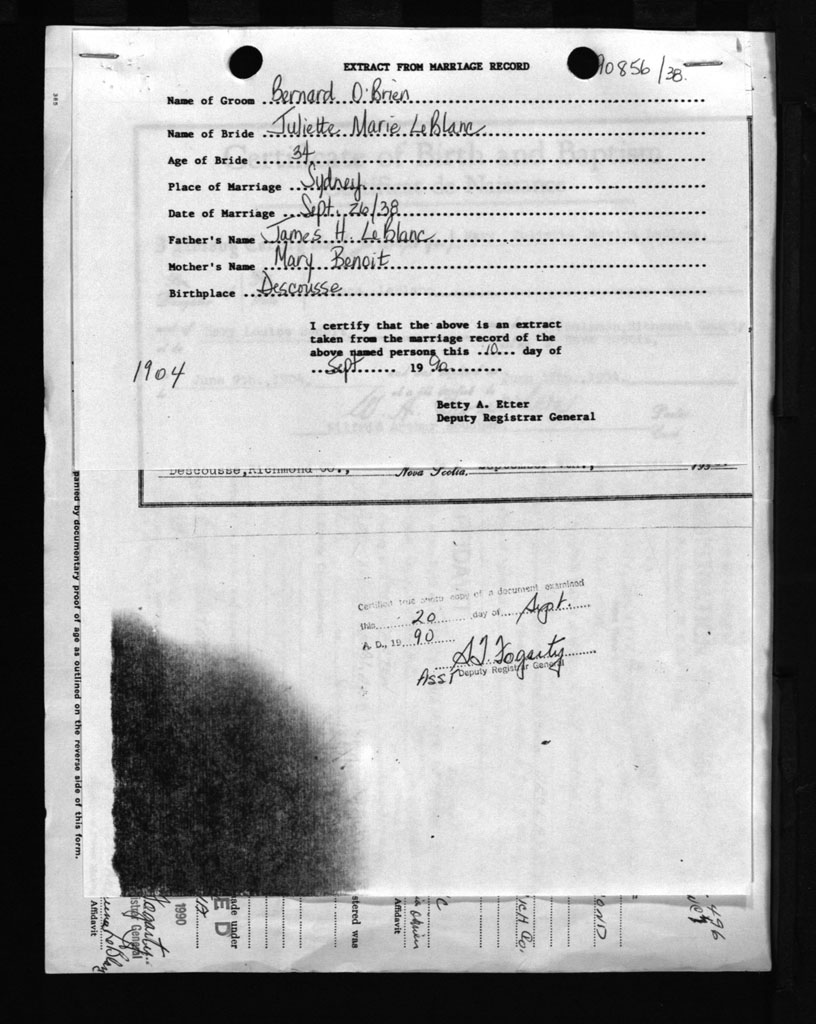 EXTRACT FROM MARRIAGE RECORD
90856/38.
Name of Groom Bernard O'Brien
Name of Bride Juliette Marie LeBlanc
Age of Bride 34
Place of Marriage Sydney
Date of Marriage Sept. 26/38
Father's Name James H. LeBlanc
Mother's Name Mary Benoit
Birthplace Descousse
I certify that the above is an extract
taken from the marriage record of the
above named persons this 10 day of
Sept 19 90
1904
Betty A. Etter
Deputy Registrar General
Certificate of Birth and Baptism
June 9th., 1904,
Descousse, Richmond Co., Nova Scotia. September
Certified true photo copy of a document examined
this 20 day of Sept.
A. D., 19 90
A J Fogarty
Asst Deputy Registrar General
panied by documentary proof of age as outlined on the reverse side of this form.
385
Affidavit
Fogarty
istrar General
1990
ED
ade under
stered was
Affidavit
496